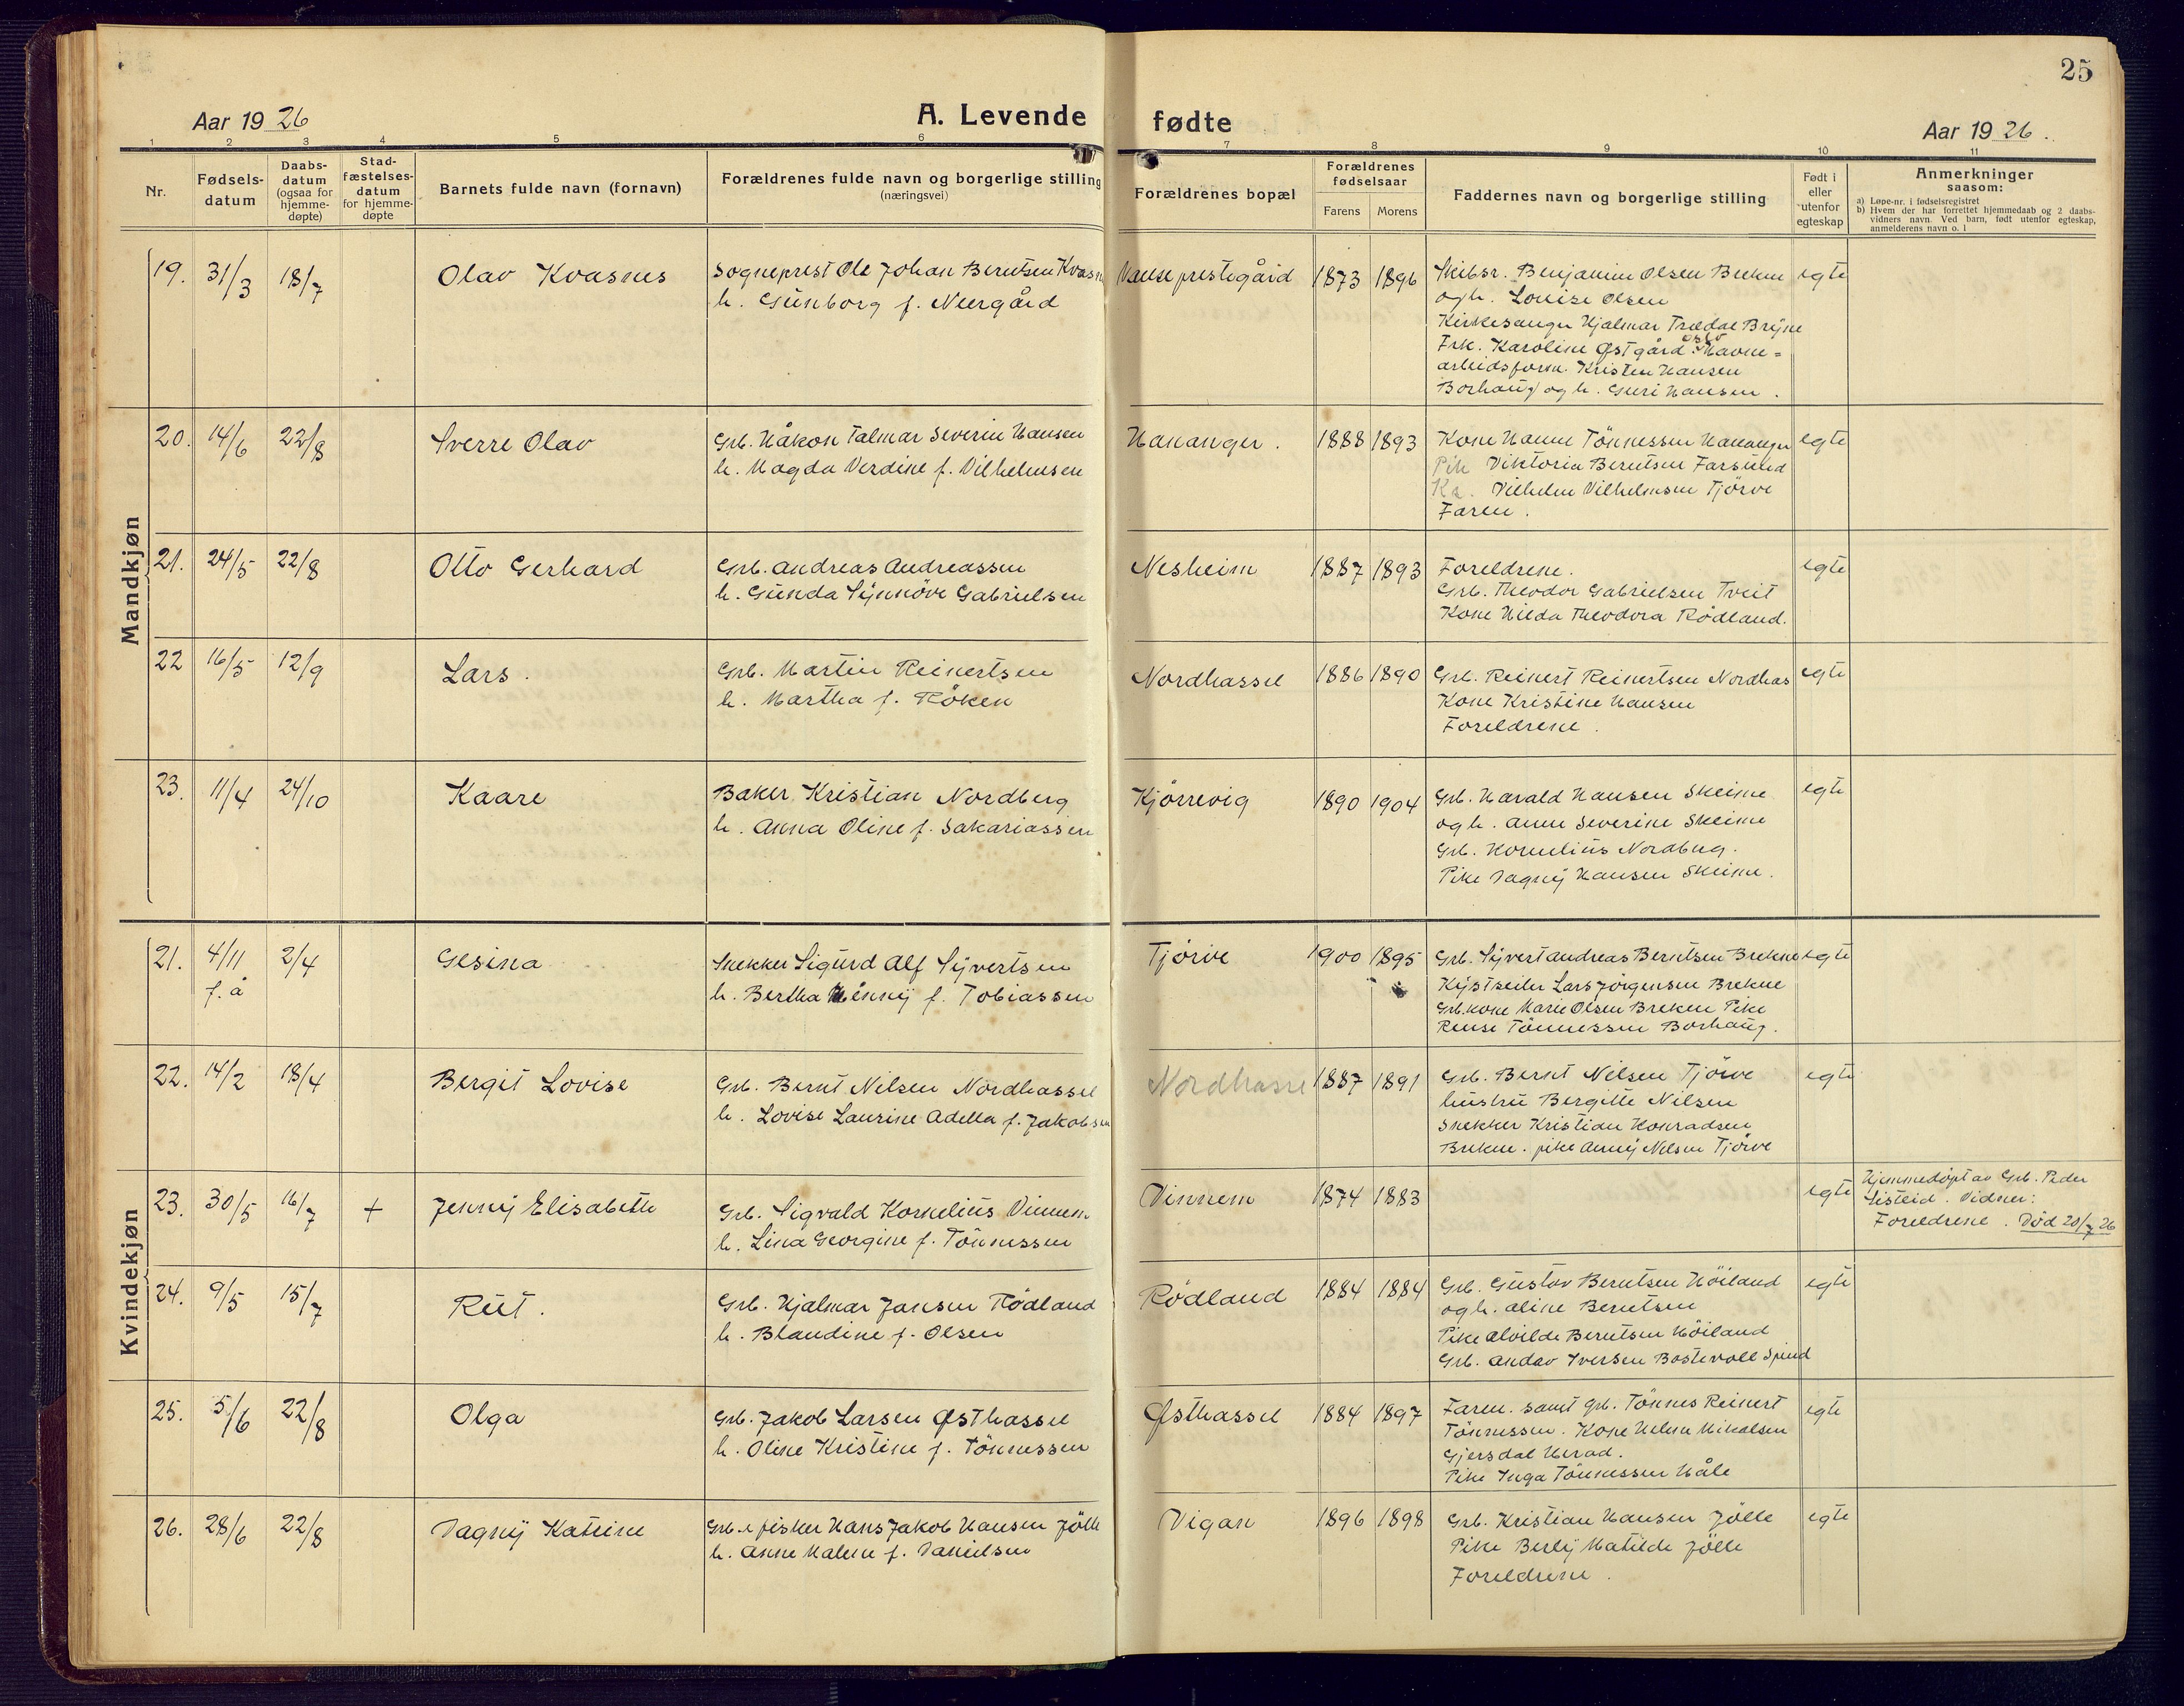 25
Aar 1926
A. Levende fødte
Aar 1926.
1 2 3 4 5 6 7 8 9 10 11
Nr.
Fødsels-
datum
Daabs-
datum
(ogsaa for
hjemme-
døpte)
Stad-
fæstelses-
datum
for hjemme-
døpte
Barnets fulde navn (fornavn)
Forældrenes fulde navn og borgerlige stilling
(næringsvei)
Forældrenes bopæl
Forældrenes
fødselsaar
Farens Morens
Faddernes navn og borgerlige stilling
Født i
eller
utenfor
egteskap
Anmerkninger
saasom:
a) Løpe-nr. i fødselsregistret
b) Hvem der har forrettet hjemmedaab og 2 daabs-
vidners navn. Ved barn, født utenfor egteskap,
anmelderens navn o. l
Mandkjøn
19. 31/3 18/7 Olav Kvasnes
Sogneprest Ole Johan Berntsen Kvasn
h. Gunborg f. Neergård
Vanse prestegård 1873 1896
Skibsr. Benjamin Olsen Brekne
og h. Louise Olsen
Kirkesanger Hjalmar Trædal Bryne
Frk. Karoline Østgård Oslo Havne=
arbeidsform. Kristen Hansen
Borhaug og h. Guri Hansen.
egte
20. 14/6 22/8 Sverre Olav
Grb. Håkon Talmar Severin Hansen
h. Magda Verdine f. Vilhelmsen
Hananger. 1888 1893
Kone Hanne Tönnessen Hananger
Pik Viktoria Berntsen Farsund
Ka. Vilhelm Vilhelmsen Tjörve
Faren.
egte
21. 24/5 22/8 Otto Gerhard
Grb. Andreas Andreassen
h. Gunda Synnöve Gabrielsen
Nesheim 1887 1893
Foreldrene.
Grb. Theodor Gabrielsen Tveit
Kone Hilda Theodora Rödland.
egte
22 16/5 12/9 Lars.
Grb. Martin Reinertsen
h. Martha f. Röken
Nordhassel 1886 1890
Grb. Reinert Reinertsen Nordhas
Kone Kristine Hansen
Foreldrene.
egte
23. 11/4 24/10 Kaare
Baker Kristian Nordberg
h. Anna Oline f. Sakariassen
Kjörrevig 1890 1904
Grb. Harald Hansen Skeime
og h. Anne Severine Skeime
Grb. Kornelius Nordberg.
Pike Dagny Hansen Skeime.
egte
Kvindekjøn
21. 4/11 f. å 2/4 Gesina
Snekker Sigurd Alf Syvertsen
h. Bertha Henny f. Tobiassen
Tjörve 1900 1895
Grb. Syvert Andreas Berntsen Brekne
Kystseiler Lars Jörgensen Brekne
Grb.kone Marie Olsen Brekne Pike
Rense Tönnessen Borhaug.
egte
22. 14/2 18/4 Bergit Lovise
Grb. Bernt Nilsen Nordhassel
h. Lovise Laurine Adella f. Jakobsen
Nordhasse 1887 1891
Grb. Bernt Nilsen Tjörve
hustru Bergitte Nilsen
Snekker Kristian Konradsen
Brekne. pike Anny Nilsen Tjörve
egte
23. 30/5 16/7 + Jenny Elisabeth
Grb. Sigvald Kornelius Vinnem
h. Lina Georgine f. Tönnessen
Vinnem 1874 1883
egte
Hjemmedöpt av Grb. Peder
Listeid. Vidner:
Foreldrene. Död 20/7 26
24. 9/5 15/7 Rut.
Grb. Hjalmar Jansen Rödland
h. Blandine f. Olsen
Rödland 1884 1884
Grb. Gustav Berntsen Höiland
og h. Aline Berntsen
Pike Alvilde Berntsen Höiland
Grb. Andav Iversen Bostevoll Spind
egte
25. 5/6 22/8 Olga
Grb. Jakob Larsen Østhassel
h. Oline Kristine f. Tönnessen
Østhassel 1884 1897
Faren. samt grb. Tönnes Reinert
Tönnessen. Kone Helene Mikalsen
Gjersdal Herad.
Pike Inga Tönnessen Håle
egte
26. 28/6 22/8 Dagny Katrine
Grb. & fisker Hans Jakob Hansen Jölle
h. Anne Malene f. Danielsen
Vigan 1896 1898
Grb. Kristian Hansen Jölle
Pike Berly Matilde Jölle
Foreldrene.
egte